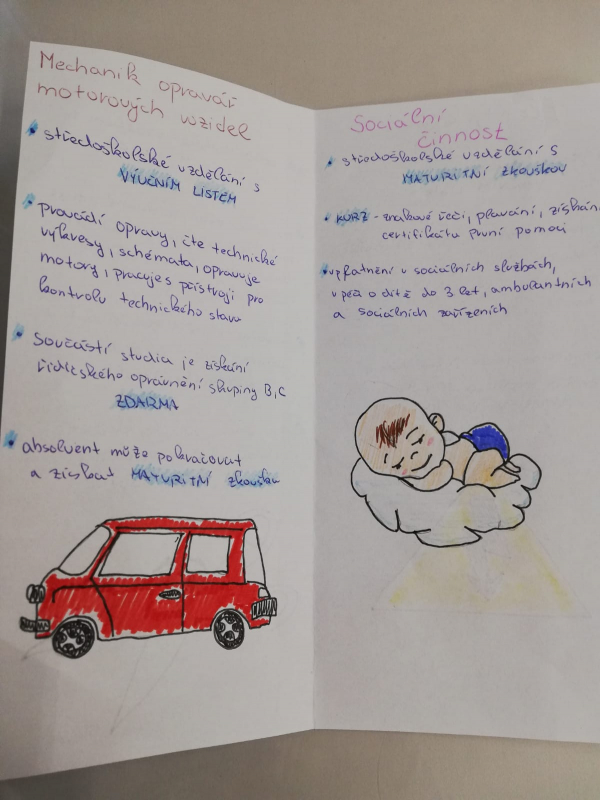 Mechanik opravář
motorových vozidel
středoškolské vzdělání s
VÝUČNÍM LISTEM
provádí opravy, čte technické
výkresy, schémata, opravuje
motory, pracuje s přístroji pro
kontrolu technického stavu
Součástí studia je získání
řidičského oprávnění skupiny B, C
ZDARMA
absolvent může pokračovat
a získat MATURITNÍ zkoušku
Sociální
činnost
středoškolské vzdělání s
MATURITNÍ zkouškou
KURZ - znakové řeči, plavání, získán
certifikátu první pomoci
uplatnění v sociálních službách,
v péči o dítě do 3 let, ambulantních
a sociálních zařízeních